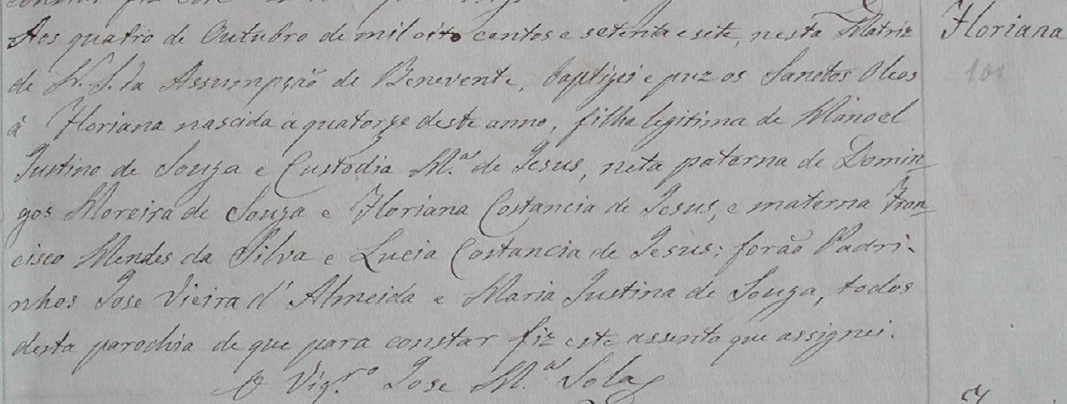 Aos quatro de Outubro de mil oito centos e setenta e sete, nesta Matriz
Floriana
de N. S. da Assumpção de Benevente, baptizei e puz os Sanctos Oleos
101
á Floriana nascida a quatorze deste anno, filha legitima de Manoel
Justino de Souza e Custodia M.ª de Jesus, neta paterna de Domin-
gos Moreira de Souza e Floriana Costancia de Jesus, e materna Fran-
cisco Mendes da Silva e Lucia Costancia de Jesus; forão Padri-
nhos Jose Vieira d' Almeida e Maria Justina de Souza, todos
desta parochia de que para constar fiz este assento que assignei.
O Vigr.º Jose M.ª